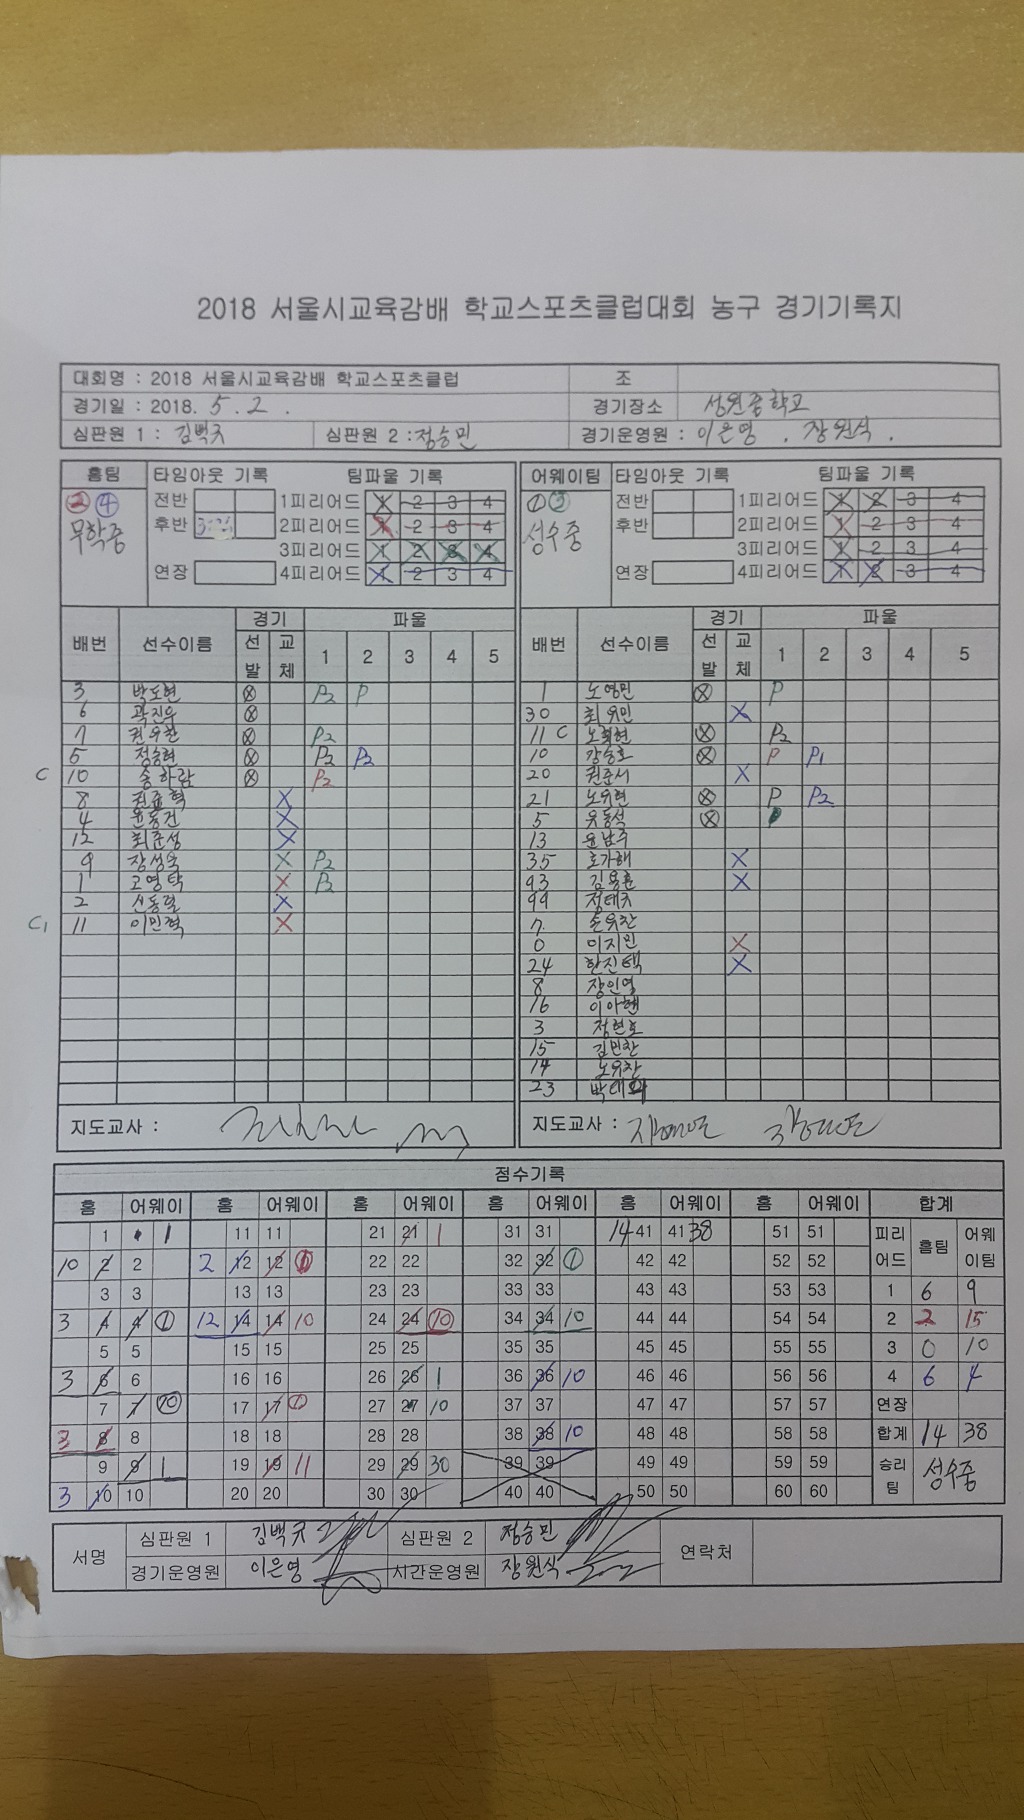 2018 서울시교육감배 학교스포츠클럽대회 농구 경기기록지
대회명 : 2018 서울시교육감배 학교스포츠클럽 조
경기일 : 2018. 5. 2. 경기장소 성원중학교
심판원 1 : 김백규 심판원 2 : 정승민 경기운영원 : 이은영 . 장원식 .
홈팀 타임아웃 기록 팀파울 기록 어웨이팀 타임아웃 기록 팀파울 기록
② ④ 전반 1피리어드 1 2 3 4 ① ③ 전반 1피리어드 1 2 3 4
무학중 후반 2피리어드 1 2 3 4 성수중 후반 2피리어드 1 2 3 4
3피리어드 1 2 3 4 3피리어드 1 2 3 4
연장 4피리어드 1 2 3 4 연장 4피리어드 1 2 3 4
배번 선수이름 경기 파울 배번 선수이름 경기 파울
선발 교체 1 2 3 4 5 선발 교체 1 2 3 4 5
3 박도현 ⊗ P2 P 1 노영민 ⊗ P
6 곽진우 ⊗ 30 최유민 X
7 권우찬 ⊗ P2 11 C ⊗ P2
5 정승현 ⊗ P2 P2 10 강승호 ⊗ P P1
C 10 송하람 ⊗ P2 20 권준서 X
8 X 21 노우현 ⊗ P P2
4 윤동건 X 5 유동석 ⊗
12 최준성 X 13 윤남주
9 장성욱 X P2 35 X
1 고영탁 X P2 93 김용훈 X
2 신동렬 X 99 정태주
C1 11 이민혁 X 7 손유찬
0 이지민 X
24 한진택 X
8 장인영
16
3 정현호
15 김민찬
14 노유찬
23
지도교사 : 지도교사 :
점수기록
홈 어웨이 홈 어웨이 홈 어웨이 홈 어웨이 홈 어웨이 홈 어웨이 합계
1 1 1 11 11 21 21 1 31 31 14 41 41 38 51 51 피리어드 홈팀 어웨이팀
10 2 2 2 12 12 ① 22 22 32 32 ① 42 42 52 52
3 3 13 13 23 23 33 33 43 43 53 53 1 6 9
3 4 4 ① 12 14 14 10 24 24 ⑩ 34 34 10 44 44 54 54 2 2 15
5 5 15 15 25 25 35 35 45 45 55 55 3 0 10
3 6 6 16 16 26 26 1 36 36 10 46 46 56 56 4 6 4
7 7 ⑩ 17 17 ① 27 27 10 37 37 47 47 57 57 연장
3 8 8 18 18 28 28 38 38 10 48 48 58 58 합계 14 38
9 9 1 19 19 11 29 29 30 39 39 49 49 59 59 승리팀 성수중
3 10 10 20 20 30 30 40 40 50 50 60 60
서명 심판원 1 김백규 심판원 2 정승민 연락처
경기운영원 이은영 시간운영원 장원식